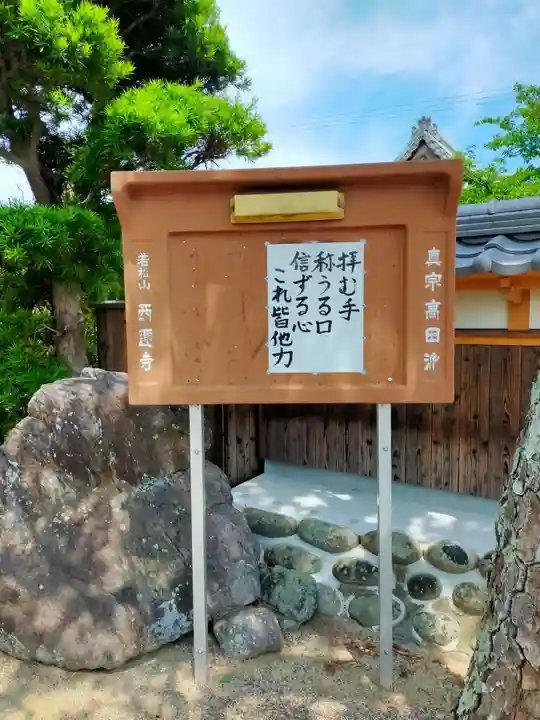 真宗高田派
拝む手
称うる口
信ずる心
これ皆他力
若松山 西還寺